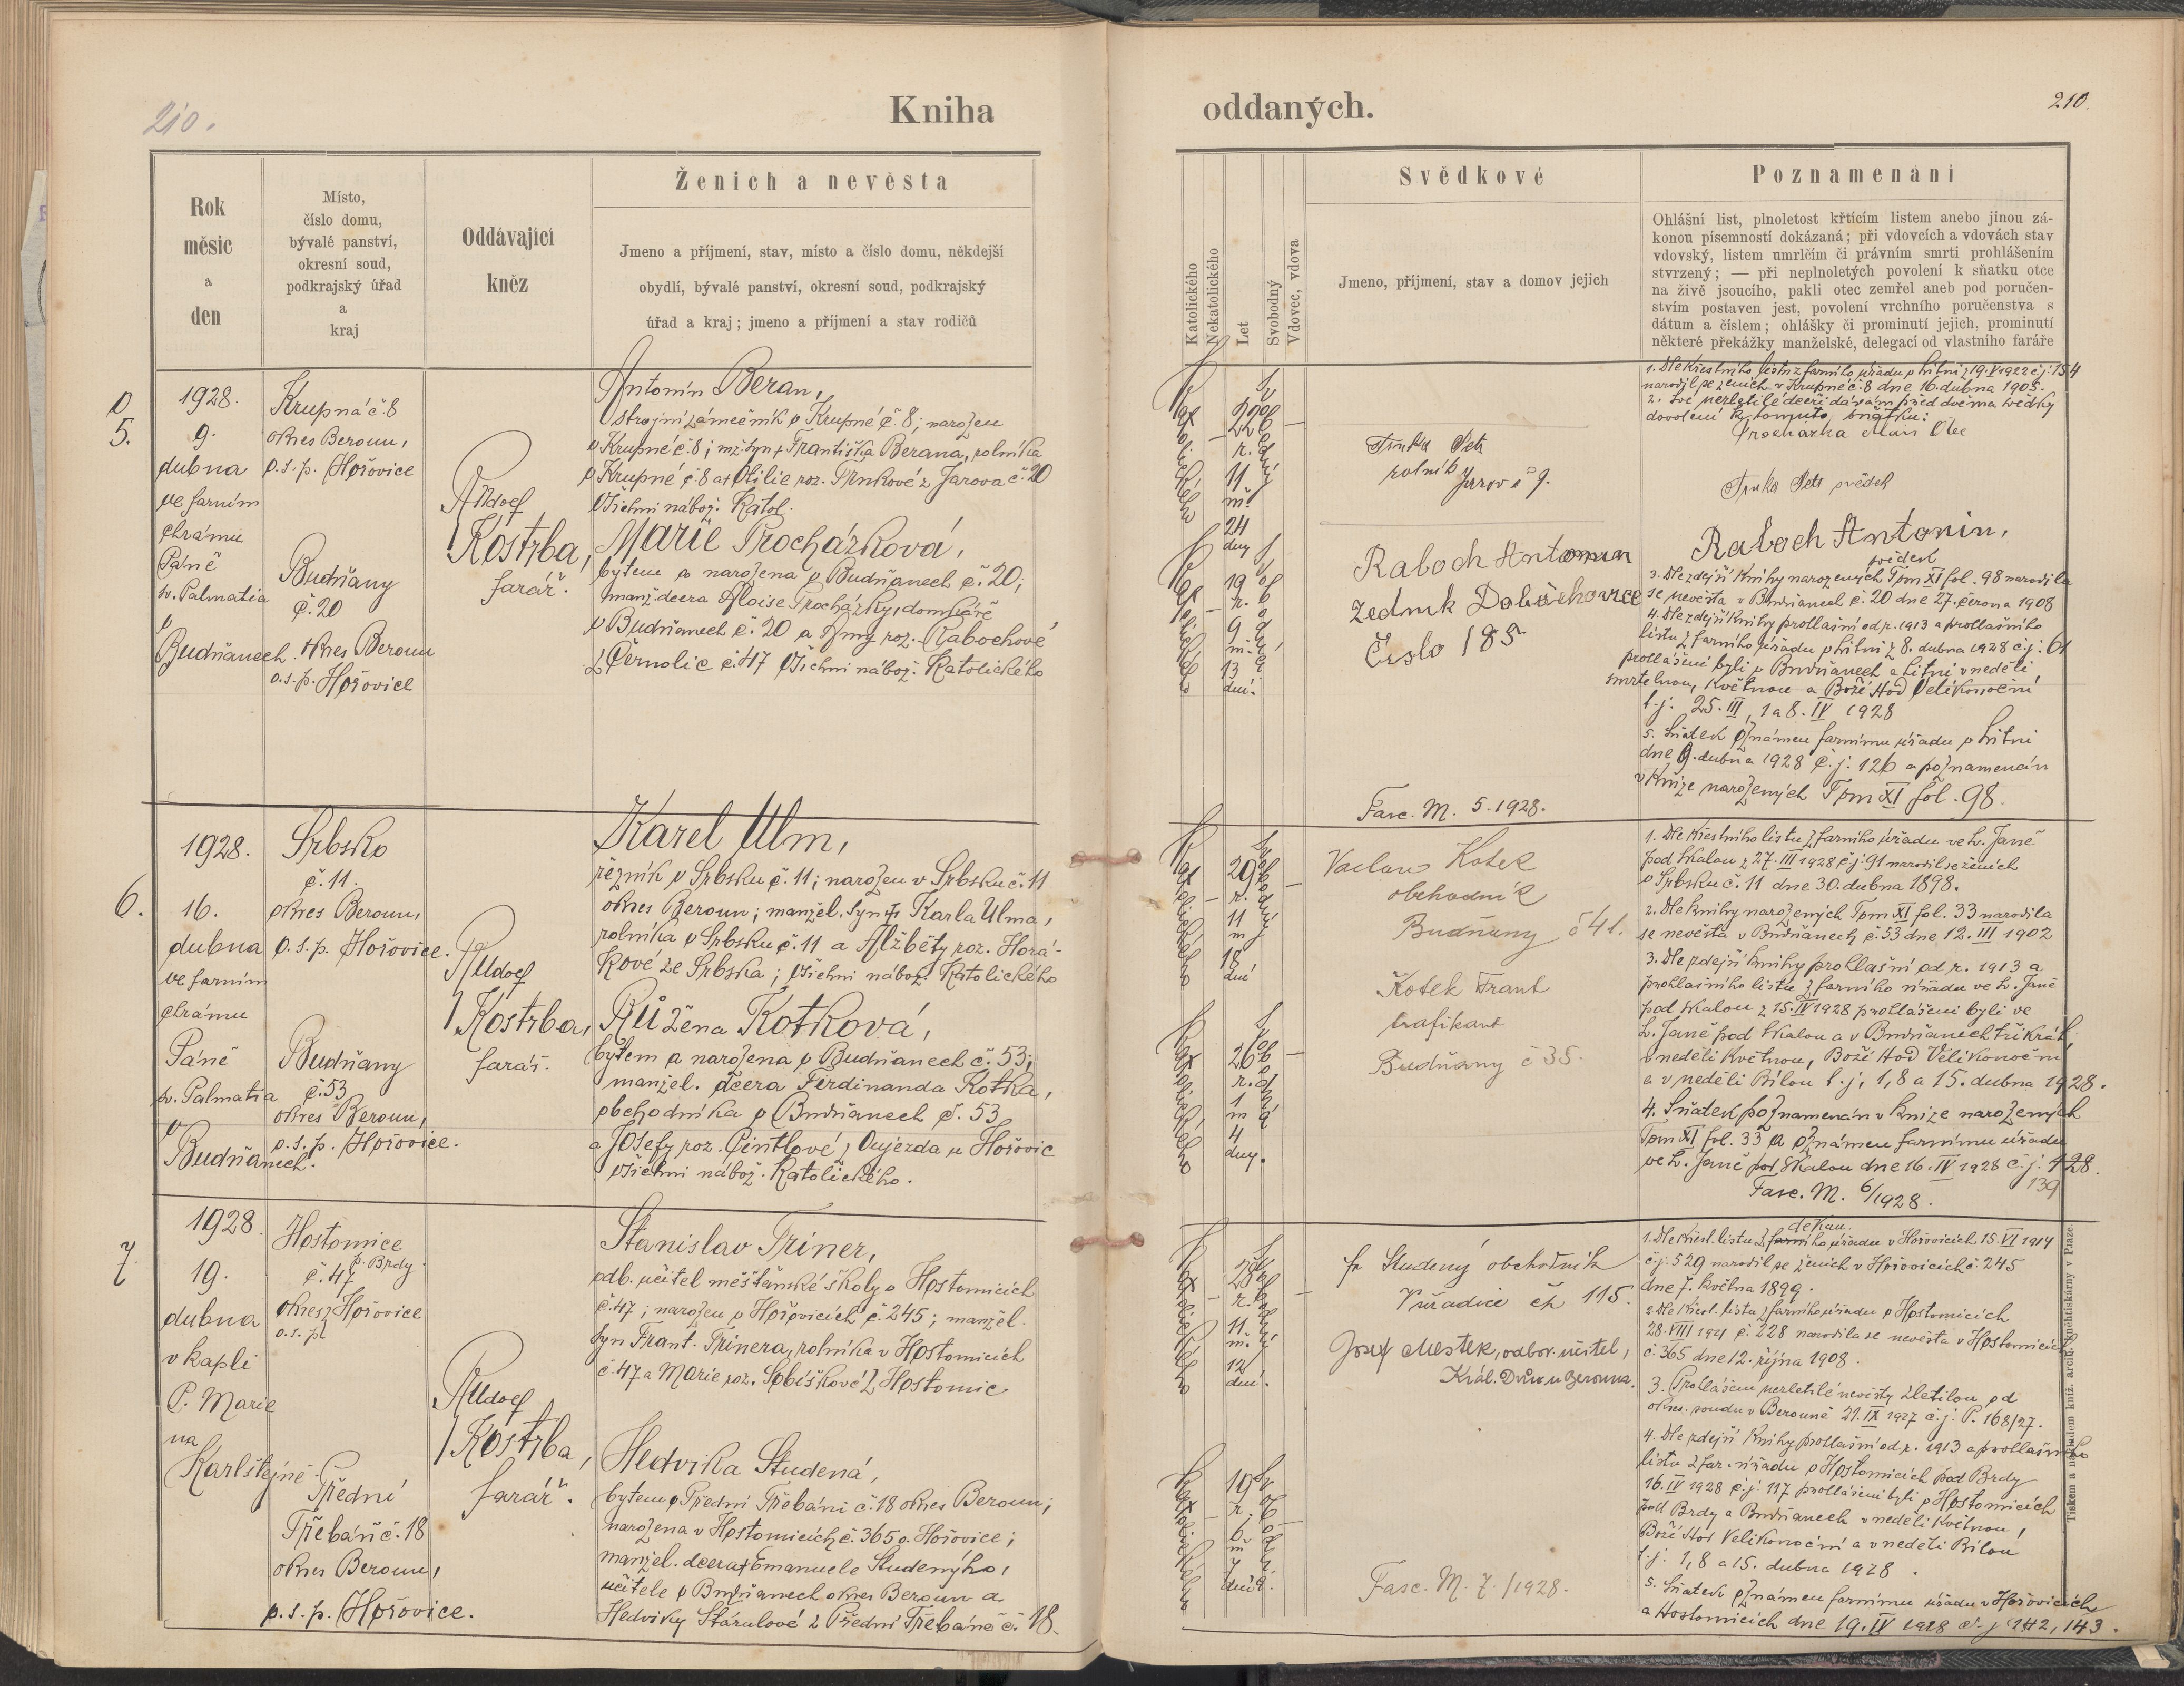 210.
Kniha
oddaných.
210.
Rok
měsíc
a
den
Místo,
číslo domu,
bývalé panství,
okresní soud,
podkrajský úřad
a
kraj
Oddávající
kněz
Ženich a nevěsta
Jmeno a příjmení, stav, místo a číslo domu, někdejší
obydlí, bývalé panství, okresní soud, podkrajský
úřad a kraj; jmeno a příjmení a stav rodičů
Katolického
Nekatolického
Let
Svobodný
Vdovec, vdova
Svědkové
Jmeno, příjmení, stav a domov jejich
Poznamenání
Ohlášní list, plnoletost křticím listem anebo jinou zá-
konou písemností dokázaná; při vdovcích a vdovách stav
vdovský, listem umrlčím či právním smrti prohlášením
stvrzený; — při neplnoletých povolení k sňatku otce
na živě jsoucího, pakli otec zemřel aneb pod poručen-
stvím postaven jest, povolení vrchního poručenstva s
dátum a číslem; ohlášky či prominutí jejich, prominutí
některé překážky manželské, delegací od vlastního faráře
5.
1928.
9.
dubna
ve farním
chrámu
Páně
sv. Palmatia
v
Budňanech.
Krupná č. 8
okres Beroun,
o.s.p. Hořovice
Budňany
č. 20
okres Beroun
o.s.p. Hořovice
Rudolf
Kostrba,
farář.
Antonín Beran,
strojní zámečník v Krupné č. 8; narozen
v Krupné č. 8; mž. syn † Františka Berana, rolníka
v Krupné č. 8 a † Otilie roz. Trnkové z Jarova č. 20
Všichni nábož. katol.
Marie Procházková,
bytem a narozena v Budňanech č. 20;
manž. dcera Aloise Procházky, domkáře
v Budňanech č. 20 a Anny roz. Rabochové
z Černolic č. 47 Všichni nábož. katolického
Katolického
22
r.
11
m.
24
dny
Svobodný
Katolického
19
r.
9
m.
13
dní.
Svobodná
Trnka Petr
rolník
Jarov č 9.
Raboch Antonín
zedník Dobřichovice
Číslo 185
Fasc. M. 5. 1928.
1. Dle křestního listu z farního úřadu v Litni z 19. V 1922 č.j. 154
narodil se ženich v Krupné č. 8 dne 16. dubna 1905.
2. Své nezletilé dceři dávám před dvěma svědky
dovolení k tomuto sňatku:
Procházka Alois Otec
Trnka Petr svědek
Raboch Antonín,
svědek
3. Dle zdejší knihy narozených Tom XI fol. 98 narodila
se nevěsta v Budňanech č. 20 dne 27. června 1908
4. Dle zdejší knihy prohlášní od r. 1913 a prohlašního
listu z farního úřadu v Litni z 8. dubna 1928 č.j. 61
prohlášeni byli v Budňanech a Litni v neděli
smrtelnou, květnou a Boží Hod Velikonoční
t.j. 25. III, 1 a 8. IV 1928
5. Sňatek oznámen farnímu úřadu v Litni
dne 9. dubna 1928 č.j. 126 a poznamenán
v knize narozených Tom XI fol. 98.
6.
1928.
16.
dubna
ve farním
chrámu
Páně
sv. Palmatia
v
Budňanech.
Srbsko
č. 11.
okres Beroun,
o.s.p. Hořovice.
Budňany
č. 53
okres Beroun,
o.s.p. Hořovice.
Rudolf
Kostrba,
farář.
Karel Ulm,
řezník v Srbsku č. 11; narozen v Srbsku č. 11
okres Beroun; manžel. syn † Karla Ulma,
rolníka v Srbsku č. 11 a Alžběty roz. Horá-
kové ze Srbska; Všichni nábož. katolického
Růžena Kotková,
bytem a narozena v Budňanech č. 53;
manžel. dcera Ferdinanda Kotka,
obchodníka v Budňanech č. 53
a Josefy roz. Cintlové z Oujezda u Hořovic
Všichni nábož. katolického.
Katolického
29
r.
11
m
18
dní
Svobodný
Katolického
26
r.
1
m
4
dny.
Svobodná
Vaclav Kotek
obchodník
Budňany č 41.
Kotek Frant
trafikant
Budňany č 35.
1. Dle křestního listu z farního úřadu ve sv. Janě
pod Skalou z 27. III 1928 č.j. 91 narodil se ženich
v Srbsku č. 11 dne 30. dubna 1898.
2. Dle knihy narozených Tom XI fol. 33 narodila
se nevěsta v Budňanech č. 53 dne 12. III 1902
3. Dle zdejší knihy prohlašní od r. 1913 a
prohlašního listu z farního úřadu ve sv. Janě
pod Skalou z 15. IV 1928 prohlášeni byli ve
sv. Janě pod Skalou a v Budňanech třikrát,
v neděli květnou, Boží Hod Velikonoční
a v neděli Bílou t.j. 1, 8 a 15. dubna 1928.
4. Sňatek poznamenán v knize narozených
Tom XI fol. 33 a oznámen farnímu úřadu
ve sv. Janě pod Skalou dne 16. IV 1928 č.j. 128.
139
Fasc. M. 6/1928.
7
1928.
19.
dubna
v kapli
P. Marie
na
Karlštejně.
Hostomice
p. Brdy.
č. 47
okres Hořovice
o.s.p.
Přední
Třebáň č. 18
okres Beroun,
o.s.p. Hořovice.
Rudolf
Kostrba,
farář.
Stanislav Triner,
odb. učitel měšťanské školy v Hostomicích
č. 47; narozen v Hořovicích č. 245; manžel.
syn Frant. Trinera, rolníka v Hostomicích
č. 47 a Marie roz. Sobíškové z Hostomic
Hedvika Studená,
bytem v Přední Třebáni č. 18 okres Beroun;
narozena v Hostomicích č. 365 o. Hořovice;
manžel. dcera † Emanuele Studeného,
učitele v Budňanech okres Beroun a
Hedviky Stáralové z Přední Třebáně č. 18.
Katolického
28
r.
11
m.
12
dní.
Svobodný
Katolického
19
r.
6.
m
7
dní.
Svobodná
fr Studený obchodník
Vúradice čp 115.
Josef Mestek, odbor. učitel,
Král. Dvůr u Berouna.
Fasc. M. 7./1928.
dekan.
1. Dle křest. listu z farního úřadu v Hořovicích 15. VI 1914
č.j. 529 narodil se ženich v Hořovicích č. 245
dne 7. května 1899.
2. Dle křest. listu z farního úřadu v Hostomicích
28. VIII 1921 č. 228 narodila se nevěsta v Hostomicích
č. 365 dne 12. října 1908.
3. Prohlášení nezletilé nevěsty zletilou od
okres. soudu v Berouně 21. IX 1927 č.j. P. 168/27.
4. Dle zdejší knihy prohlašní od r. 1913 a prohlašního
listu z far. úřadu v Hostomicích pod Brdy
16. IV 1928 č.j. 117 prohlášeni byli v Hostomicích
pod Brdy a Budňanech v neděli květnou,
Boží Hod Velikonoční a v neděli Bílou
t.j. 1, 8 a 15. dubna 1928.
5. Sňatek oznámen farnímu úřadu v Hořovicích
a Hostomicích dne 19. IV 1928 č.j. 142, 143.
Tiskem a nákladem kníž. arcib. knihtiskárny v Praze.